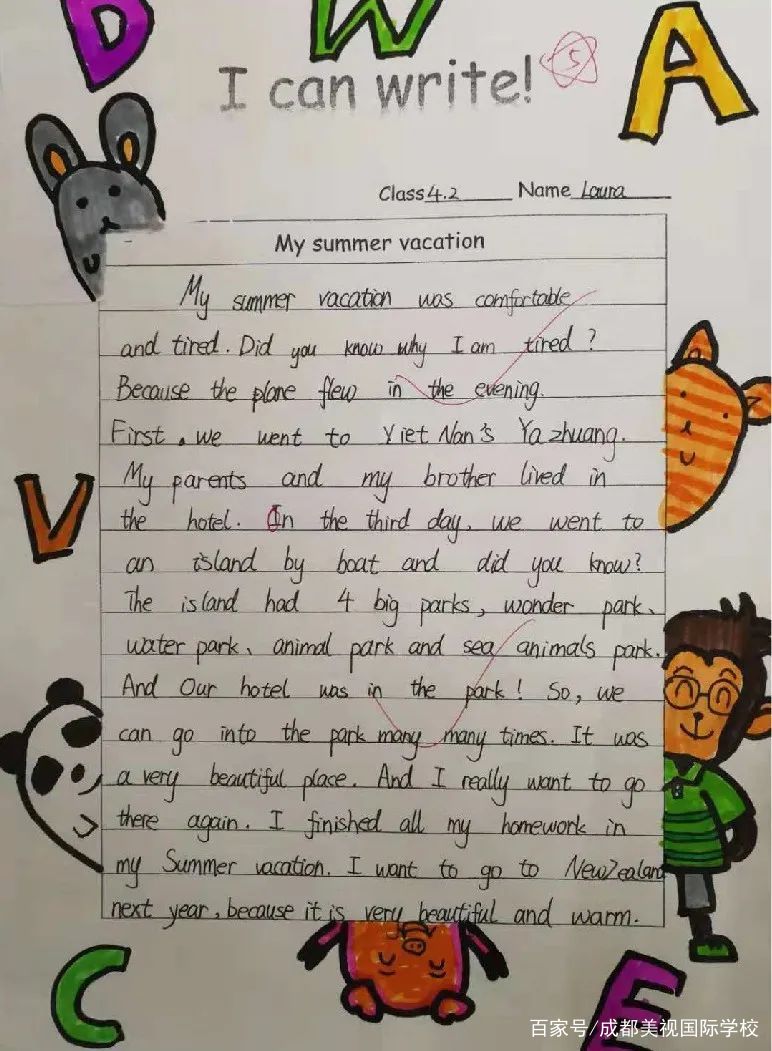 D W A
I can write! 5
Class 4.2 Name Laura
My summer vacation
My summer vacation was comfortable
and tired. Did you know why I am tired?
Because the plane flew in the evening.
First, we went to Yiet Nan's Ya zhuang.
My parents and my brother lived in
the hotel. In the third day, we went to
an island by boat and did you know?
The island had 4 big parks, wonder park、
water park、animal park and sea animals park.
And Our hotel was in the park! So, we
can go into the park many many times. It was
a very beautiful place. And I really want to go
there again. I finished all my homework in
my Summer vacation. I want to go to New Zealand
next year, because it is very beautiful and warm.
V
C E
百家号/成都美视国际学校